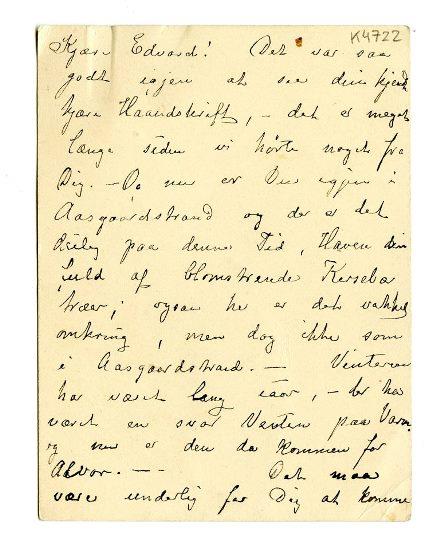 K4722
Kjære Edvard! Det var saa
godt igjen at see din kjendte
kjære Haandskrift, – det er meget
længe siden vi hørte noget fra
Dig. – Og nu er Du igjen i
Aasgaardstrand og der er det
deilig paa denne Tid, Haven din
fuld af blomstrende Kirsebær
trær; ogsaa her er det vakkert
omkring, men dog ikke som
i Aasgaardstrand. – Vinteren
har været lang iaar, – der har
været en svær Venten paa Vaar
og nu er den da kommen for
Alvor. – – Det maa
være underlig for Dig at komme